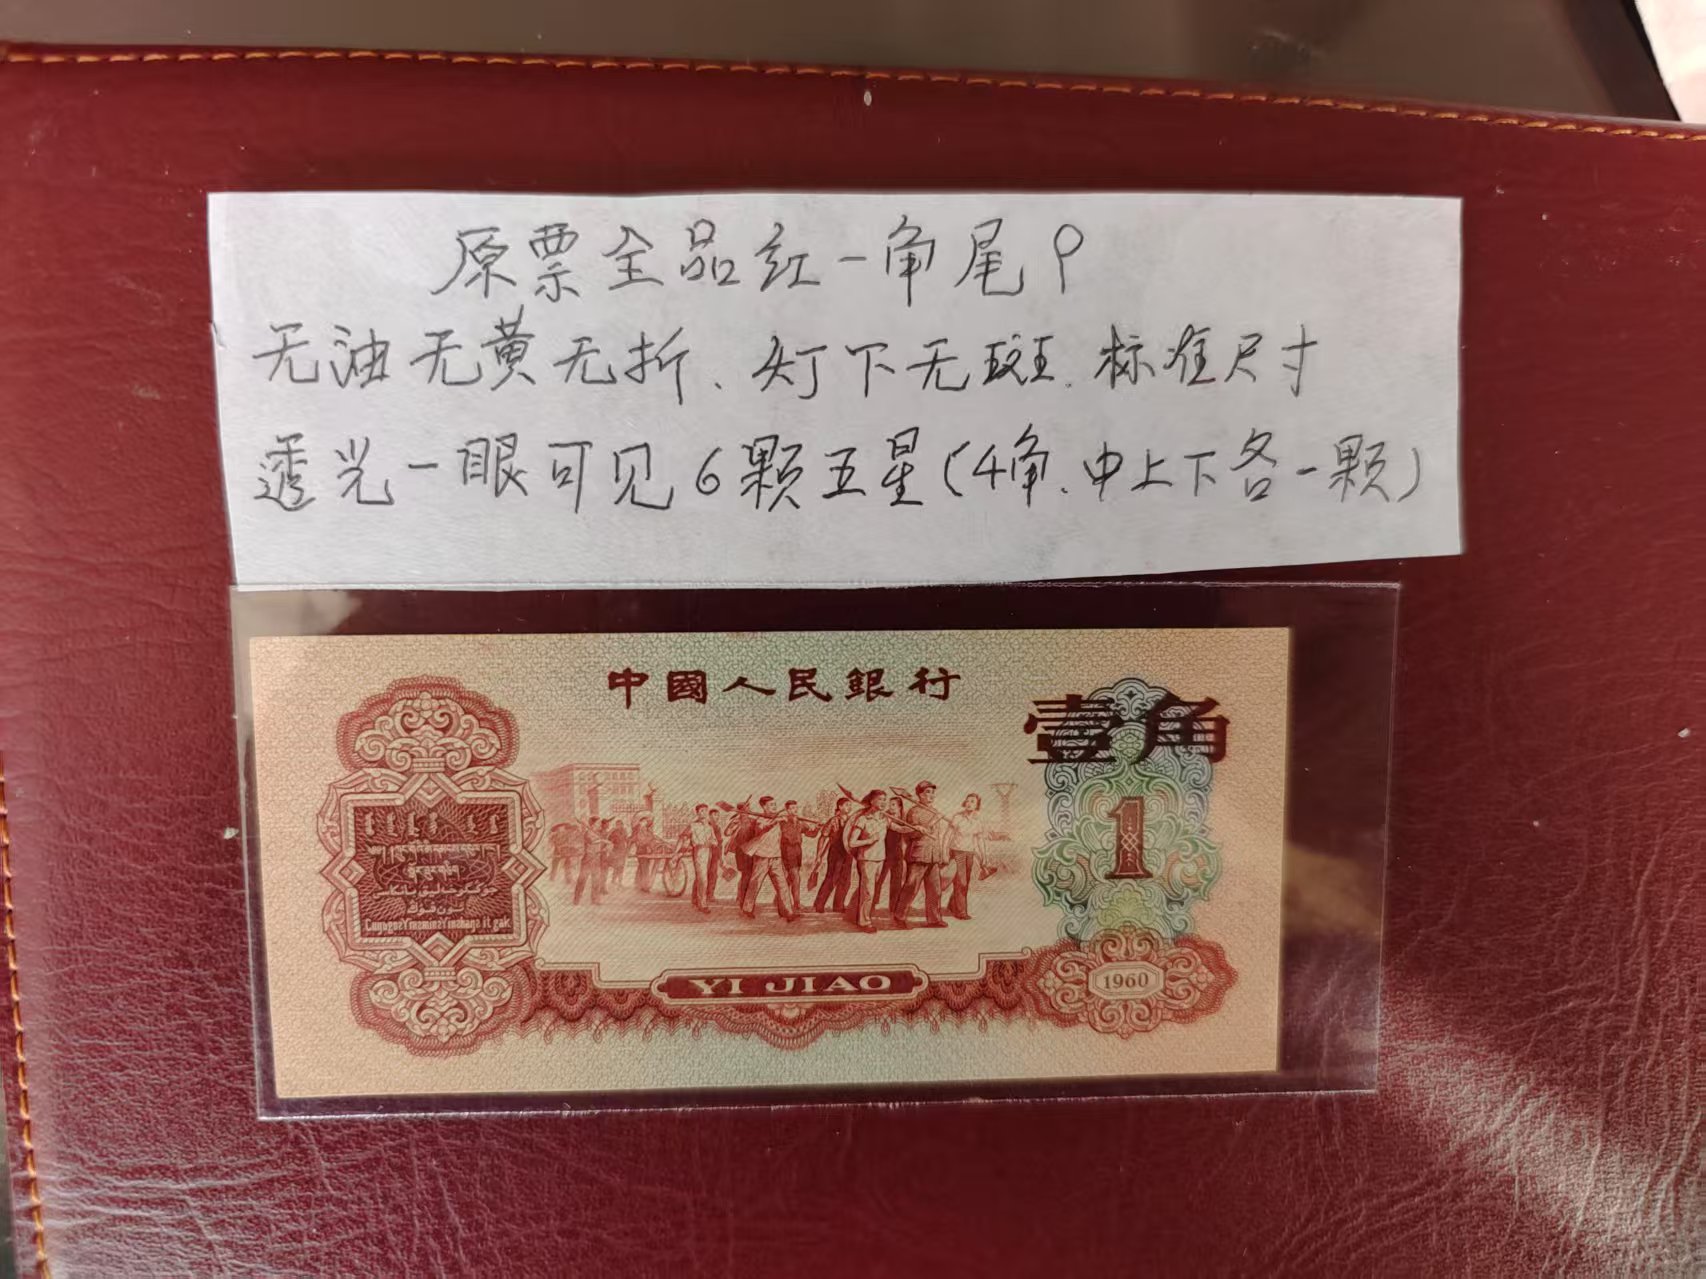 原票全品红一角尾9
无油无黄无折、灯下无斑.标准尺寸
透光一眼可见6颗五星(4角、中上下各一颗)
中國人民銀行
壹角
1
YI JIAO
1960